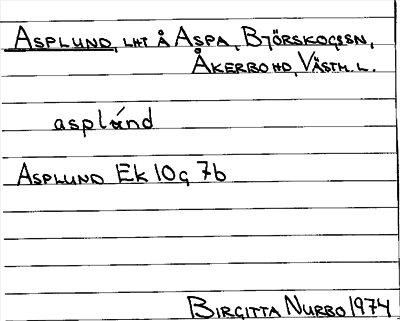 ASPLUND, LHT Å ASPA, BJÖRSKOGSSN,
ÅKERBO HD, VÄSTM. L.
asplánd
ASPLUND EK 10g 7b
BIRGITTA NURBO 1974